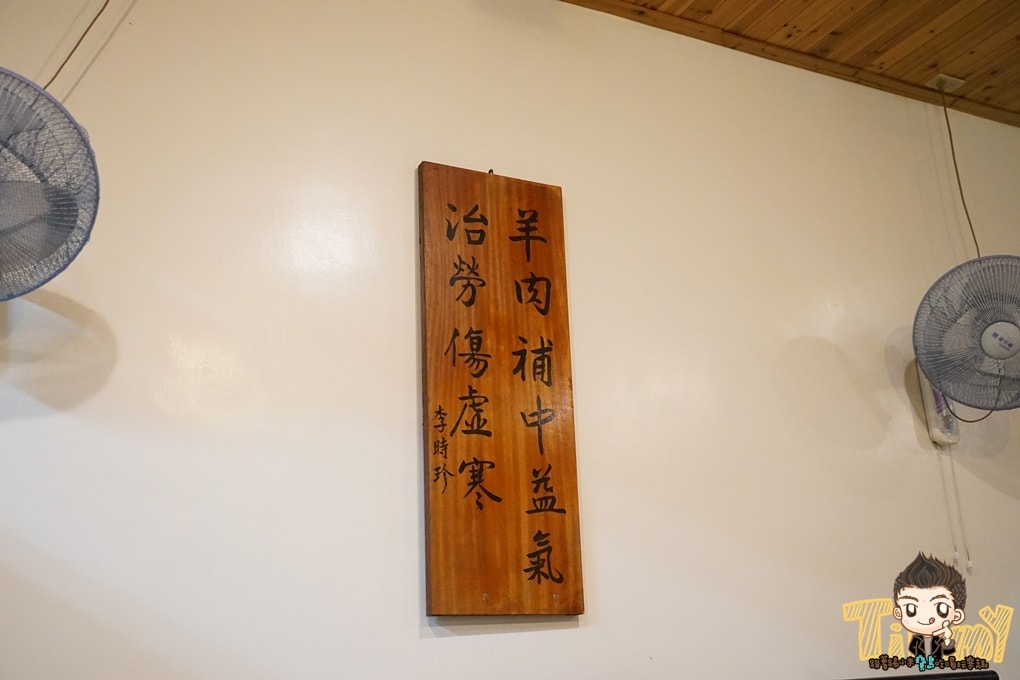 羊肉補中益氣
治勞傷虛寒
李時珍
TimmY